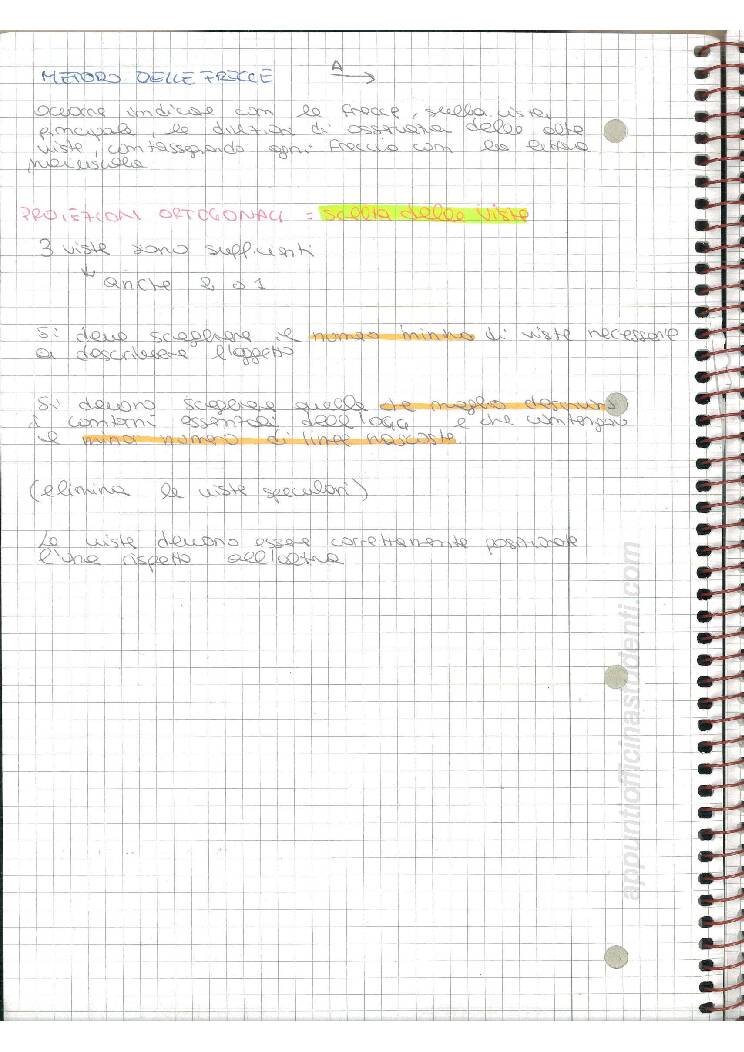 METODO DELLE FRECCE A
Occorre indicare con le frecce, sulla vista
principale, le direzioni di osservaria delle altre
viste, contassegnando ogni freccia con la lettera
maiuscola
PROIEZIONI ORTOGONALI = scelta delle viste
3 viste sono sufficienti
anche 2 o 1
Si deve scegliere il numero minimo di viste necessarie
a descrivere l'oggetto
Si devono scegliere quelle che meglio descrivono
i contorni essenziali dell'ogg e che contengano
il minor numero di linee nascoste
(elimina le viste speculari)
Le viste devono essere correttamente posizionate
l'una rispetto all'altra
appuntiofficinastudenti.com